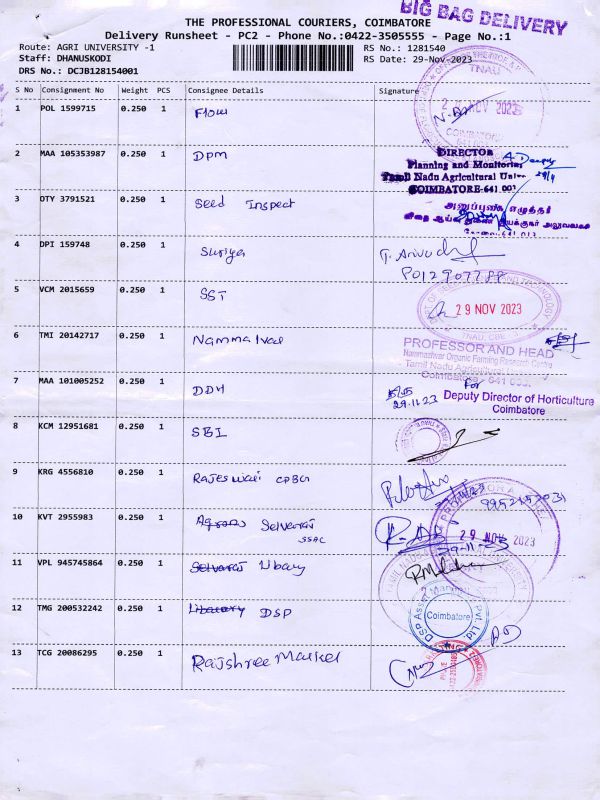 BIG BAG DELIVERY
THE PROFESSIONAL COURIERS, COIMBATORE
Delivery Runsheet - PC2 - Phone No.:0422-3505555 - Page No.:1
Route: AGRI UNIVERSITY -1
RS No.: 1281540
Staff: DHANUSKODI
RS Date: 29-Nov-2023
DRS No.: DCJB128154001
S No Consignment No Weight PCS Consignee Details Signature
TNAU
NOV 2023
COIMBATORE
1 POL 1599715 0.250 1 Flow
2 MAA 105353987 0.250 1 DPM
DIRECTOR
Planning and Monitoring
Tamil Nadu Agricultural Univer
COIMBATORE-641 003
3 OTY 3791521 0.250 1 Seed Inspect
அனுப்புகை எழுத்தர்
4 DPI 159748 0.250 1 Suriya
T. Arivu
5 VCM 2015659 0.250 1 SST
29 NOV 2023
TNAU, CBE
6 TMI 20142717 0.250 1 Nammalvar
PROFESSOR AND HEAD
Nammazhvar Organic Farming Research Centre
Tamil Nadu Agricultural University
Coimbatore - 641 003.
7 MAA 101005252 0.250 1 DDH
29.11.23
For
Deputy Director of Horticulture
Coimbatore
8 KCM 12951681 0.250 1 SBI
9 KRG 4556810 0.250 1 Rajeswari CPBG
10 KVT 2955983 0.250 1 Agrono Selvaraj
SSAC
29 NOV 2023
29-11-23
11 VPL 945745864 0.250 1 Selvaraj Libary
12 TMG 200532242 0.250 1 Libarary DSP
DSP Asset Managers Pvt. Ltd
Coimbatore
13 TCG 20086295 0.250 1 Rajshree Market